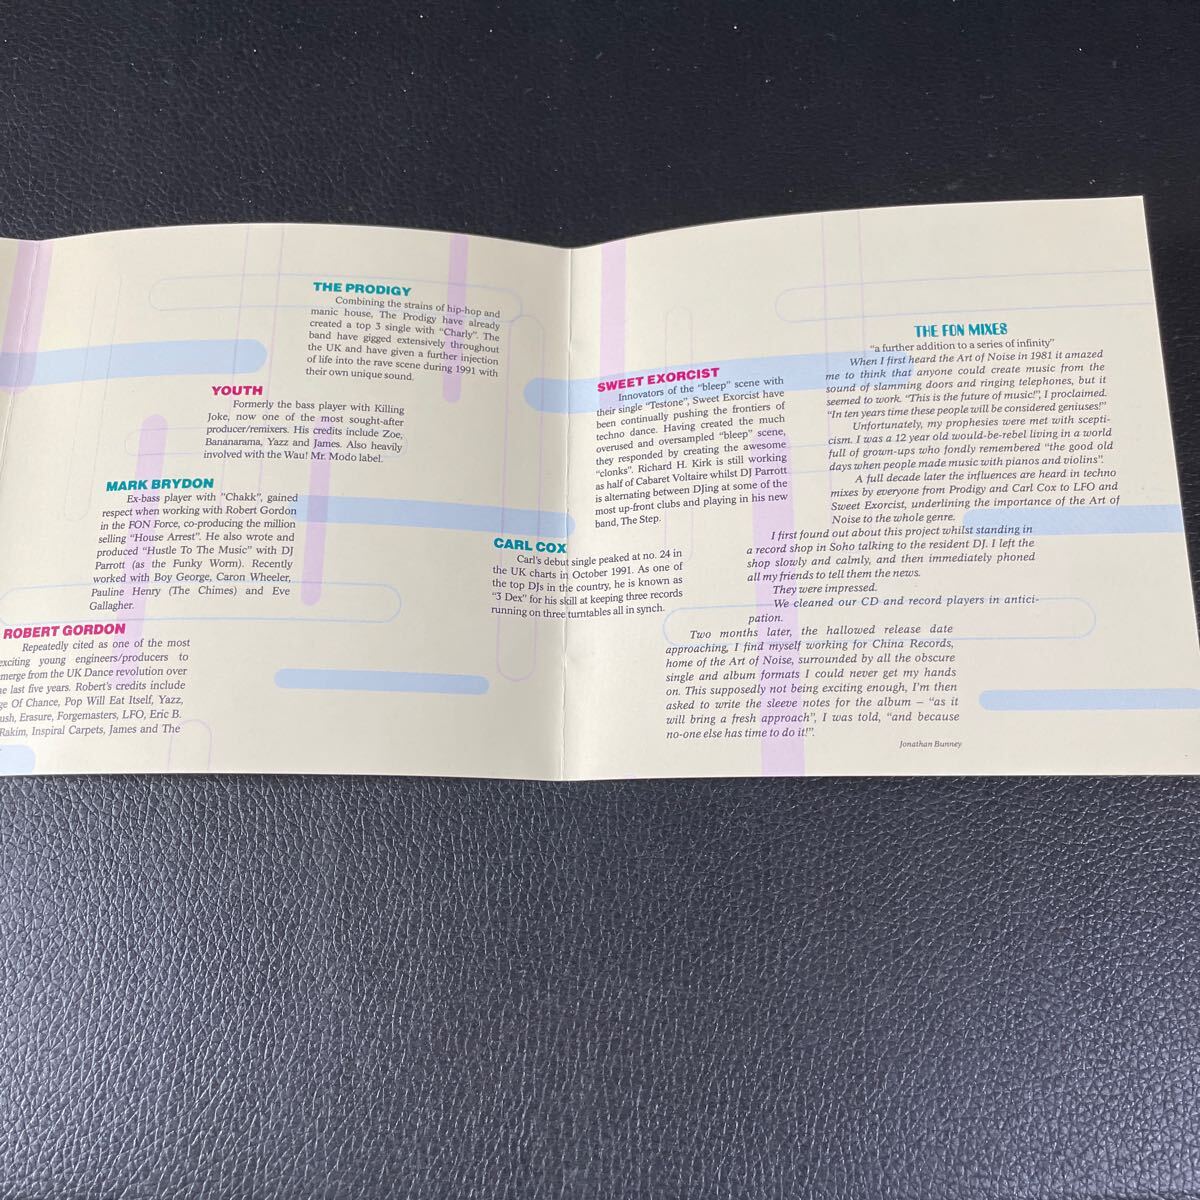 THE PRODIGY
Combining the strains of hip-hop and
manic house, The Prodigy have already
created a top 3 single with “Charly”. The
band have gigged extensively throughout
the UK and have given a further injection
of life into the rave scene during 1991 with
their own unique sound.
YOUTH
Formerly the bass player with Killing
Joke, now one of the most sought-after
producer/remixers. His credits include Zoe,
Bananarama, Yazz and James. Also heavily
involved with the Wau! Mr. Modo label.
MARK BRYDON
Ex-bass player with “Chakk”, gained
respect when working with Robert Gordon
in the FON Force, co-producing the million
selling “House Arrest”. He also wrote and
produced “Hustle To The Music” with DJ
Parrott (as the Funky Worm). Recently
worked with Boy George, Caron Wheeler,
Pauline Henry (The Chimes) and Eve
Gallagher.
ROBERT GORDON
Repeatedly cited as one of the most
exciting young engineers/producers to
merge from the UK Dance revolution over
e last five years. Robert's credits include
ge Of Chance, Pop Will Eat Itself, Yazz,
ush, Erasure, Forgemasters, LFO, Eric B.
Rakim, Inspiral Carpets, James and The
CARL COX
Carl's debut single peaked at no. 24 in
the UK charts in October 1991. As one of
the top DJs in the country, he is known as
“3 Dex” for his skill at keeping three records
running on three turntables all in synch.
SWEET EXORCIST
Innovators of the “bleep” scene with
their single “Testone”, Sweet Exorcist have
been continually pushing the frontiers of
techno dance. Having created the much
overused and oversampled “bleep” scene,
they responded by creating the awesome
“clonks”. Richard H. Kirk is still working
as half of Cabaret Voltaire whilst DJ Parrott
is alternating between DJing at some of the
most up-front clubs and playing in his new
band, The Step.
THE FON MIXES
“a further addition to a series of infinity”
When I first heard the Art of Noise in 1981 it amazed
me to think that anyone could create music from the
sound of slamming doors and ringing telephones, but it
seemed to work. “This is the future of music!”, I proclaimed.
“In ten years time these people will be considered geniuses!”
Unfortunately, my prophesies were met with scepti-
cism. I was a 12 year old would-be-rebel living in a world
full of grown-ups who fondly remembered “the good old
days when people made music with pianos and violins”.
A full decade later the influences are heard in techno
mixes by everyone from Prodigy and Carl Cox to LFO and
Sweet Exorcist, underlining the importance of the Art of
Noise to the whole genre.
I first found out about this project whilst standing in
a record shop in Soho talking to the resident DJ. I left the
shop slowly and calmly, and then immediately phoned
all my friends to tell them the news.
They were impressed.
We cleaned our CD and record players in antici-
pation.
Two months later, the hallowed release date
approaching, I find myself working for China Records,
home of the Art of Noise, surrounded by all the obscure
single and album formats I could never get my hands
on. This supposedly not being exciting enough, I'm then
asked to write the sleeve notes for the album – “as it
will bring a fresh approach”, I was told, “and because
no-one else has time to do it!”.
Jonathan Bunney